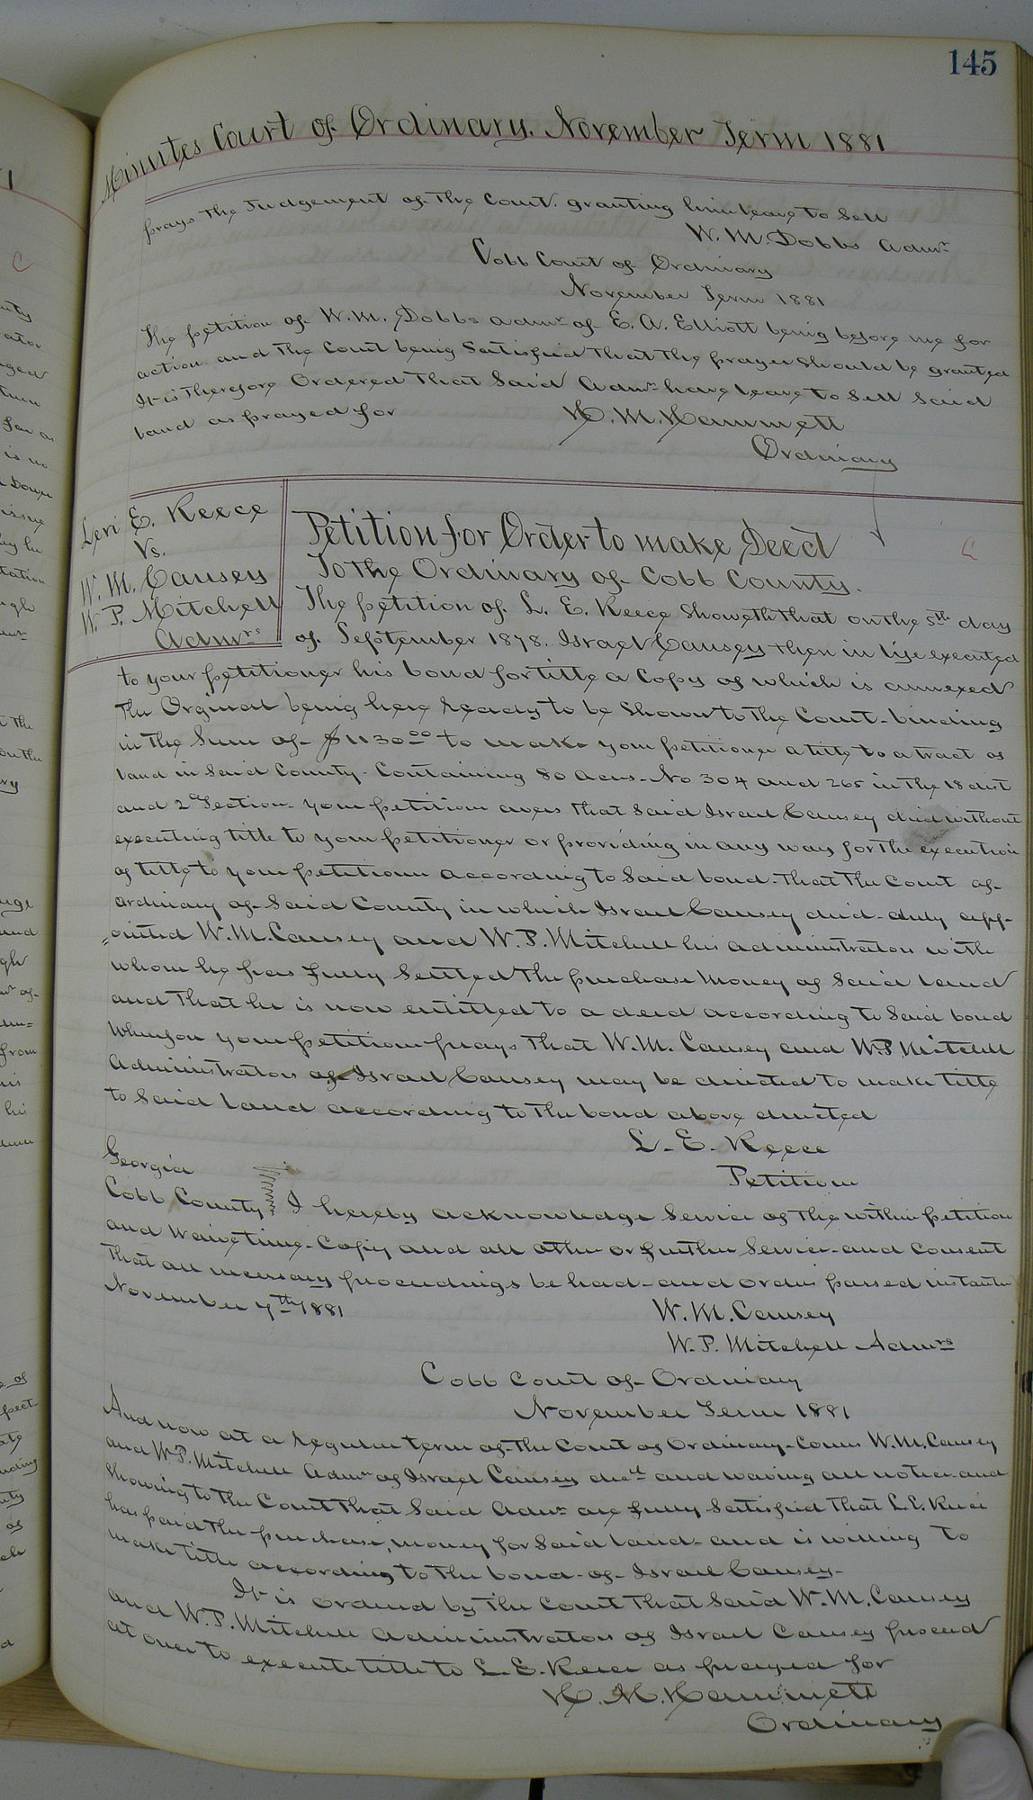 145
Minutes Court of Ordinary. November Term 1881
prays the Judgement of the Court. granting him leave to Sell
W. M. Dobbs Admr
Cobb Court of Ordinary
November Term 1881
The petition of W. M. Dobbs admr of E. A. Elliott being before me for
action and the Court being Satisfied that the prayer Should be granted
It is Therefore Ordered that Said Admr have leave to Sell Said
land as prayed for
H. M. Hammett
Ordinary
Levi E. Reece
Vs.
W. M. Causey
W. P. Mitchell
Admrs
Petition for Order to make Deed
To the Ordinary of Cobb County.
The petition of L. E. Reece Showeth that on the 5th day
of September 1878. Israel Causey then in life executed
to your petitioner his bond for title a Copy of which is annexed
The Orginal being here ready to be Shown to the Court. binding
in the Sum of $1130 00 to make your petitioner a title to a tract of
land in Said County. Containing 80 acres. No 304 and 265 in the 18 dist
and 2d Section. your petitioner avers that Said Israel Causey died without
executing title to your petitioner or providing in any way for the execution
of title to your petitioner according to Said bond. that the Court of
Ordinary of Said County in which Israel Causey died. duly app-
=ointed W. M. Causey and W. P. Mitchell his administrators with
whom he has fully Settled the purchase Money of Said land
and that he is now entitled to a deed according to Said bond
Wherefore your petitioner prays that W. M. Causey and W P Mitchell
Administrators of Israel Causey may be directed to make title
to Said land according to the bond above directed
L. E. Reece
Petitioner
Georgia
Cobb County I hereby acknowledge Service of the within petition
and waive time. Copy and all other or further Service. and Consent
that all necessary proceedings be had. and orders passed instanter
November 7th 1881
W. M. Causey
W. P. Mitchell Admrs
Cobb Court of Ordinary
November Term 1881
And now at a regular term of the Court of Ordinary. Comes W. M. Causey
and W P. Mitchell Admrs of Israel Causey decd and waving all notice and
Showing to the Court that Said Admrs are fully Satisfied that L E. Reece
has paid the purchase money for Said land. and is willing to
make title according to the bond of Israel Causey.
It is ordered by the Court that Said W. M. Causey
and W. P. Mitchell Administrators of Israel Causey proceed
at once to execute title to L. E. Reece as prayed for
H. M. Hammett
Ordinary